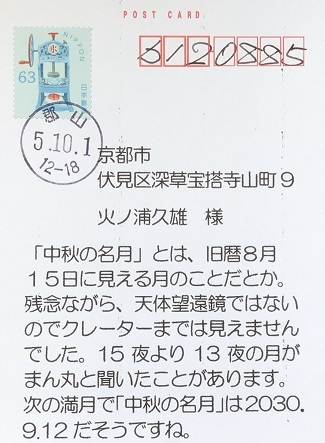 POST CARD
6120885
NIPPON
氷
63
日本郵便
郡山
5.10.1
12-18
京都市
伏見区深草宝塔寺山町9
火ノ浦久雄 様
「中秋の名月」とは、旧暦8月
15日に見える月のことだとか。
残念ながら、天体望遠鏡ではない
のでクレーターまでは見えません
でした。15夜より13夜の月が
まん丸と聞いたことがあります。
次の満月で「中秋の名月」は2030.
9.12だそうですね。